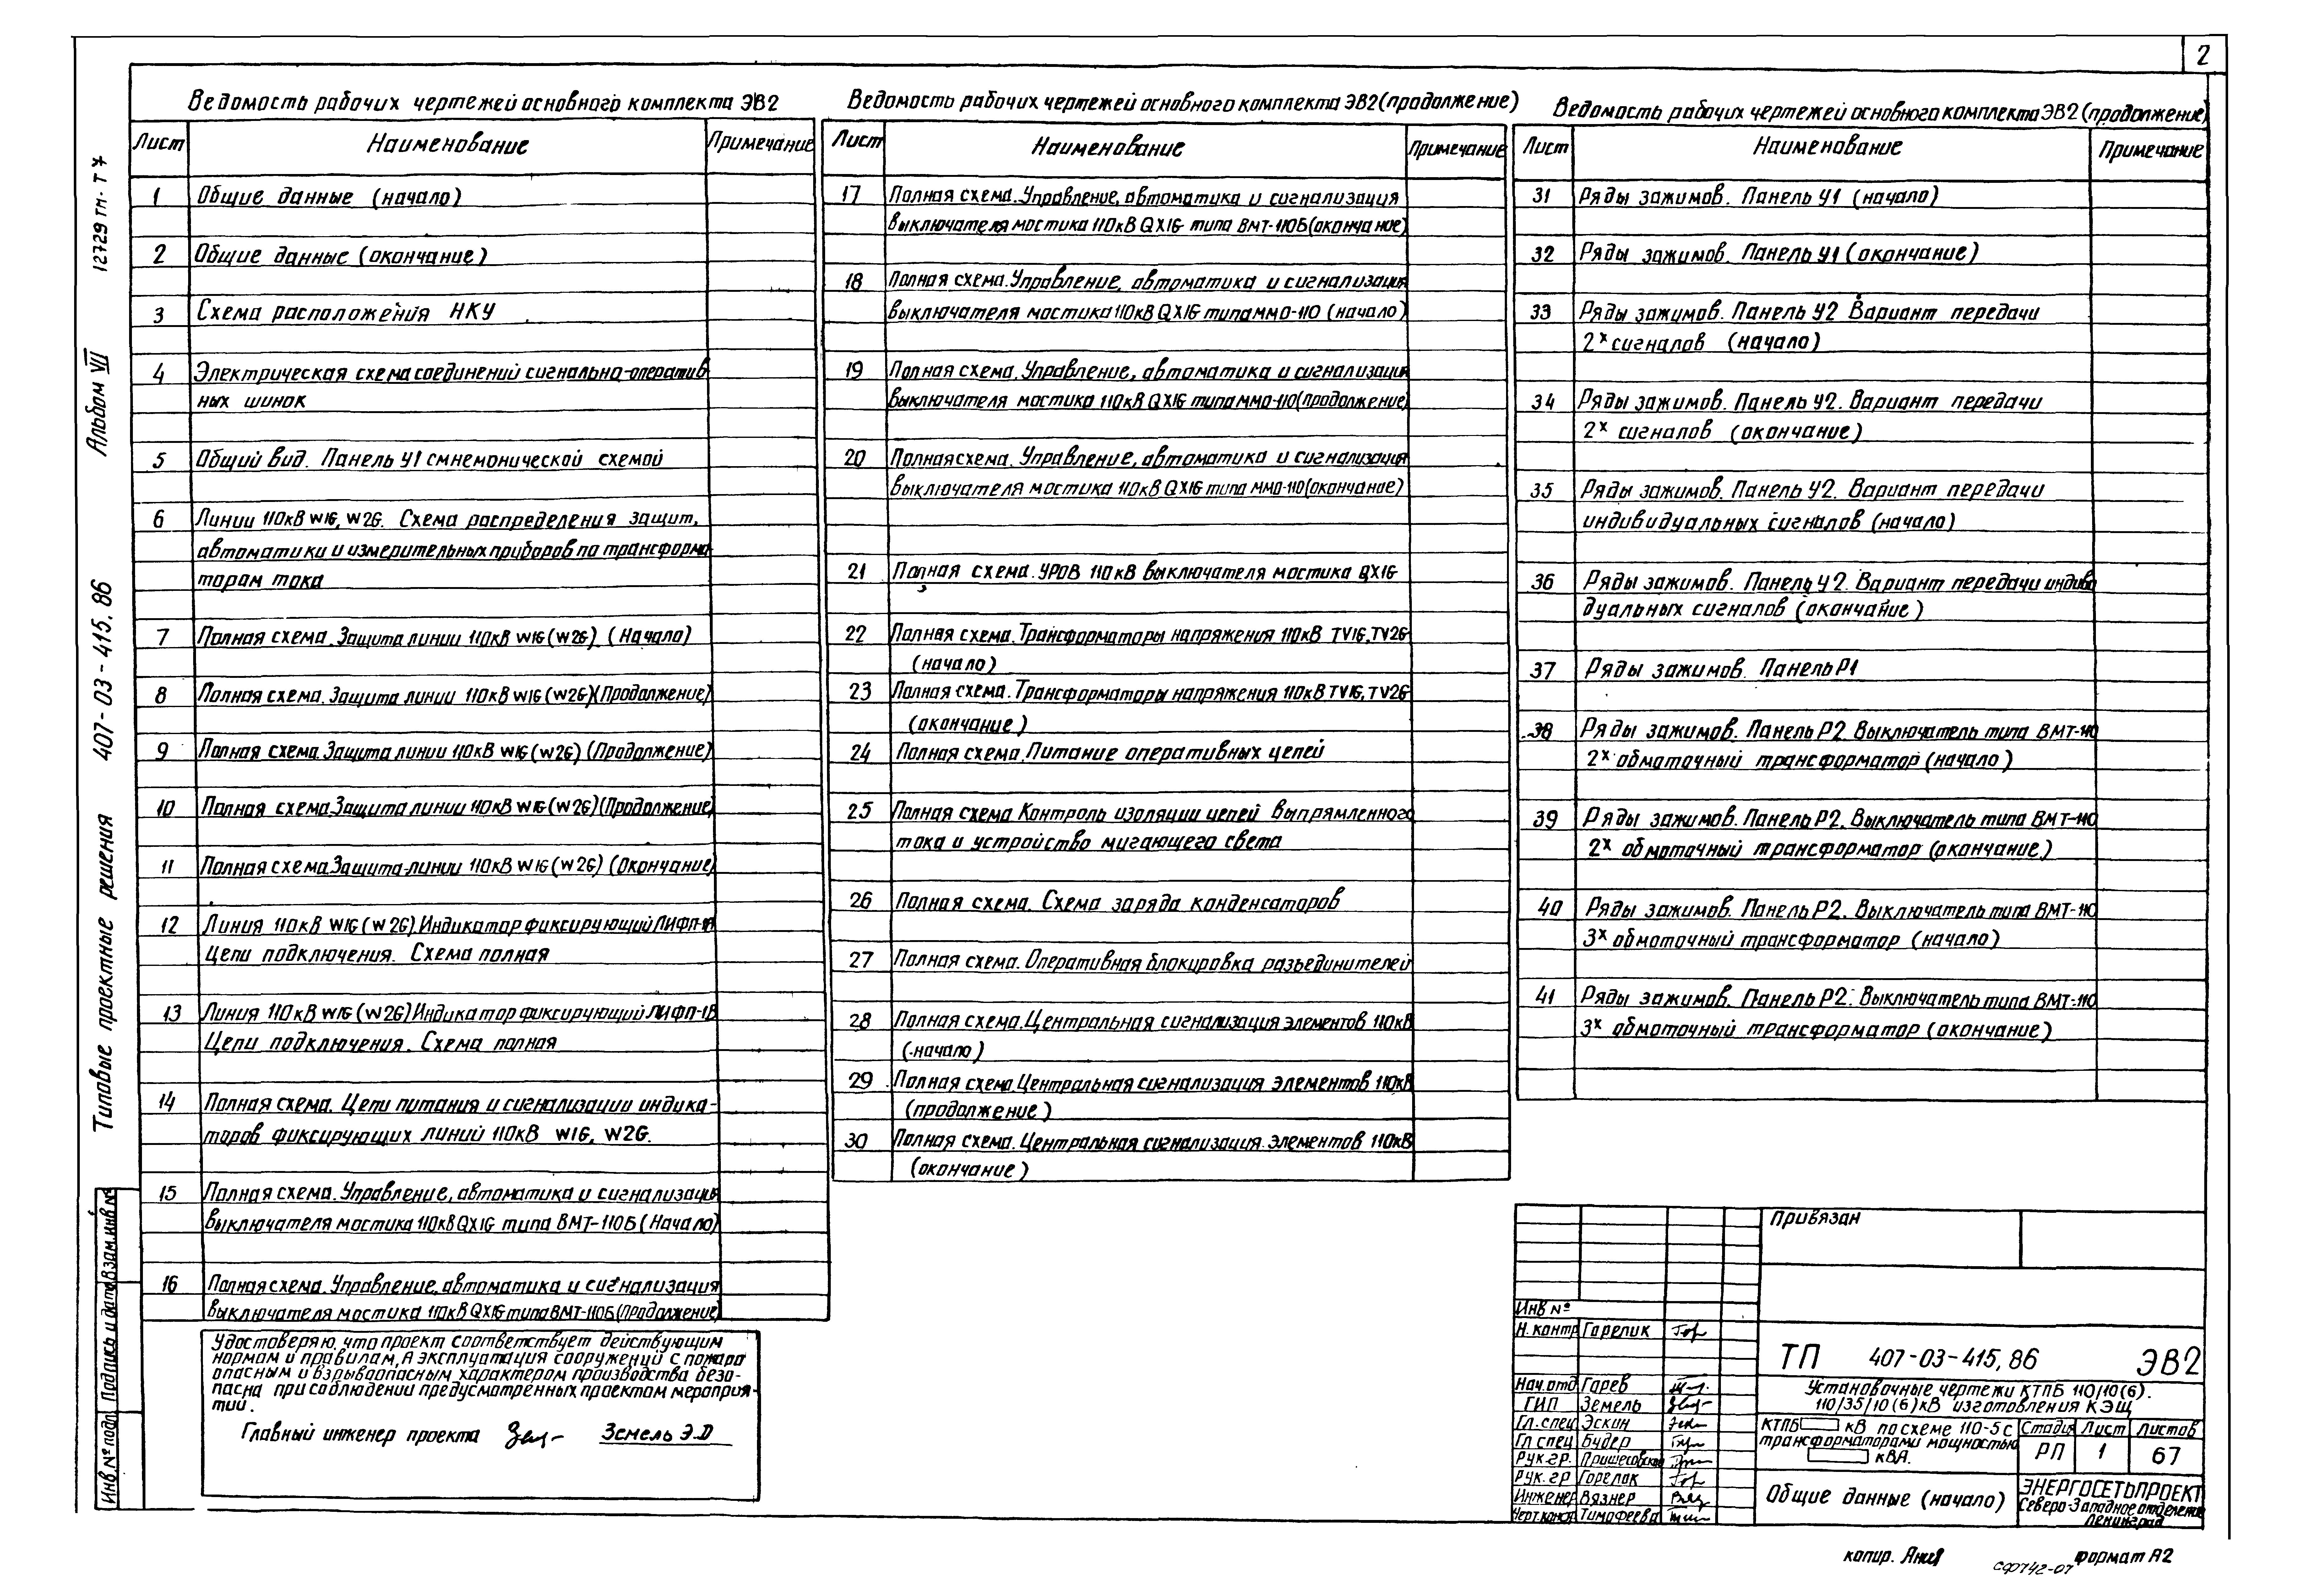 2
Ведомость рабочих чертежей основного комплекта ЭВ2
Лист Наименование Примечание
1 Общие данные (начало)
2 Общие данные (окончание)
3 Схема расположения НКУ
4 Электрическая схема соединений сигнально-оператив
ных шинок
5 Общий вид. Панель У1 с мнемонической схемой
6 Линии 110кВ W1G, W2G. Схема распределения защит,
автоматики и измерительных приборов по трансформа-
торам тока
7 Полная схема. Защита линии 110кВ W1G (W2G). (Начало)
8 Полная схема. Защита линии 110кВ W1G (W2G)(Продолжение)
9 Полная схема. Защита линии 110кВ W1G (W2G) (Продолжение)
10 Полная схема. Защита линии 110кВ W1G (W2G) (Продолжение)
11 Полная схема. Защита линии 110кВ W1G (W2G) (Окончание)
12 Линия 110кВ W1G (W2G). Индикатор фиксирующий ЛИФП-1А
Цепи подключения. Схема полная
13 Линия 110кВ W1G (W2G) Индикатор фиксирующий ЛИФП-1В
Цепи подключения. Схема полная
14 Полная схема. Цепи питания и сигнализации индика-
торов фиксирующих линий 110кВ W1G, W2G.
15 Полная схема. Управление, автоматика и сигнализация
выключателя мостика 110кВ QX1G типа ВМТ-110Б (Начало)
16 Полная схема. Управление, автоматика и сигнализация
выключателя мостика 110кВ QX1G типа ВМТ-110Б (Продолжение)
Ведомость рабочих чертежей основного комплекта ЭВ2 (продолжение)
Лист Наименование Примечание
17 Полная схема. Управление, автоматика и сигнализация
выключателя мостика 110кВ QX1G типа ВМТ-110Б (окончание)
18 Полная схема. Управление, автоматика и сигнализация
выключателя мостика 110кВ QX1G типа ММО-110 (начало)
19 Полная схема. Управление, автоматика и сигнализация
выключателя мостика 110кВ QX1G типа ММО-110 (продолжение)
20 Полная схема. Управление, автоматика и сигнализация
выключателя мостика 110кВ QX1G типа ММО-110 (окончание)
21 Полная схема. УРОВ 110кВ выключателя мостика QX1G
22 Полная схема. Трансформаторы напряжения 110кВ TV1G, TV2G
(начало)
23 Полная схема. Трансформаторы напряжения 110кВ TV1G, TV2G
(окончание)
24 Полная схема. Питание оперативных цепей
25 Полная схема Контроль изоляции цепей выпрямленного
тока и устройство мигающего света
26 Полная схема. Схема заряда конденсаторов
27 Полная схема. Оперативная блокировка разъединителей
28 Полная схема. Центральная сигнализация элементов 110кВ
(начало)
29 Полная схема. Центральная сигнализация элементов 110кВ
(продолжение)
30 Полная схема. Центральная сигнализация элементов 110кВ
(окончание)
Ведомость рабочих чертежей основного комплекта ЭВ2 (продолжение)
Лист Наименование Примечание
31 Ряды зажимов. Панель У1 (начало)
32 Ряды зажимов. Панель У1 (окончание)
33 Ряды зажимов. Панель У2 Вариант передачи
2х сигналов (начало)
34 Ряды зажимов. Панель У2. Вариант передачи
2х сигналов (окончание)
35 Ряды зажимов. Панель У2. Вариант передачи
индивидуальных сигналов (начало)
36 Ряды зажимов. Панель У2. Вариант передачи индиви
дуальных сигналов (окончание)
37 Ряды зажимов. Панель Р1
38 Ряды зажимов. Панель Р2 Выключатель типа ВМТ-110
2х обмоточный трансформатор (начало)
39 Ряды зажимов. Панель Р2. Выключатель типа ВМТ-110
2х обмоточный трансформатор (окончание)
40 Ряды зажимов. Панель Р2. Выключатель типа ВМТ-110
3х обмоточный трансформатор (начало)
41 Ряды зажимов. Панель Р2. Выключатель типа ВМТ-110
3х обмоточный трансформатор (окончание)
Типовые проектные решения 407-03-415.86 Альбом VII 12729 тм-т7
Инв.№ подл. Подпись и дата Взам.инв №
Удостоверяю, что проект соответствует действующим
нормам и правилам, а эксплуатация сооружений с пожаро
опасным и взрывоопасным характером производства безо-
пасна при соблюдении предусмотренных проектом мероприя-
тий.
Главный инженер проекта Земель Э.Д
Привязан
Инв №
Н. контр Горелик
Нач. отд Гарев
ГИП Земель
Гл. спец Эскин
Гл спец Будер
Рук. гр.
Рук. гр Горелик
Инженер Вязнер
Тимофеева
ТП 407-03-415.86 ЭВ2
Установочные чертежи КТПБ 110/10(6).
110/35/10(6)кВ изготовления КЭЩ
КТПБ кВ по схеме 110-5 с
трансформаторами мощностью
кВА.
Стадия Лист Листов
РП 1 67
Общие данные (начало)
ЭНЕРГОСЕТЬПРОЕКТ
Северо-Западное отделение
Ленинград
копир. Формат А2
СФ742-07